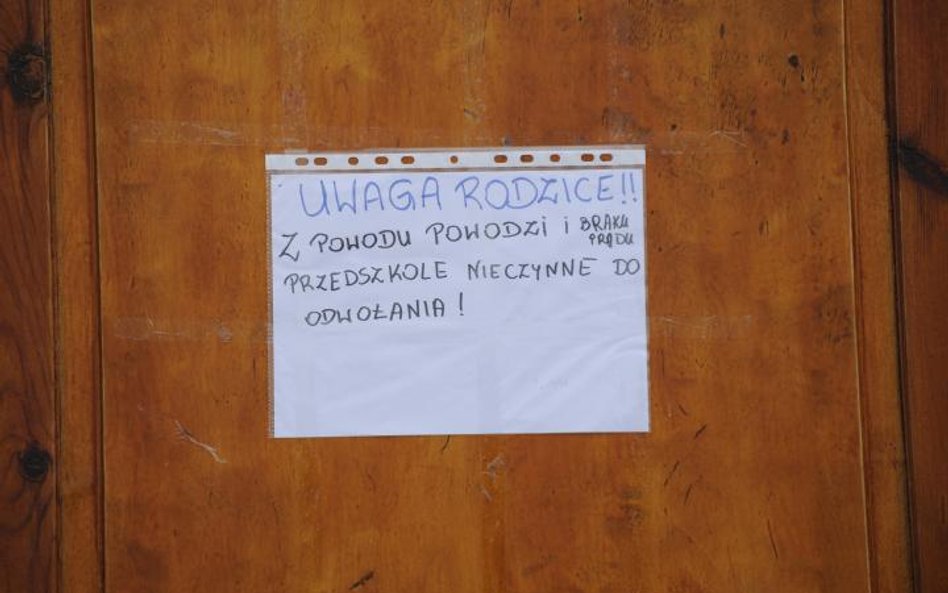 UWAGA RODZICE!!
Z POWODU POWODZI i BRAKU PRĄDU
PRZEDSZKOLE NIECZYNNE DO
ODWOŁANIA!